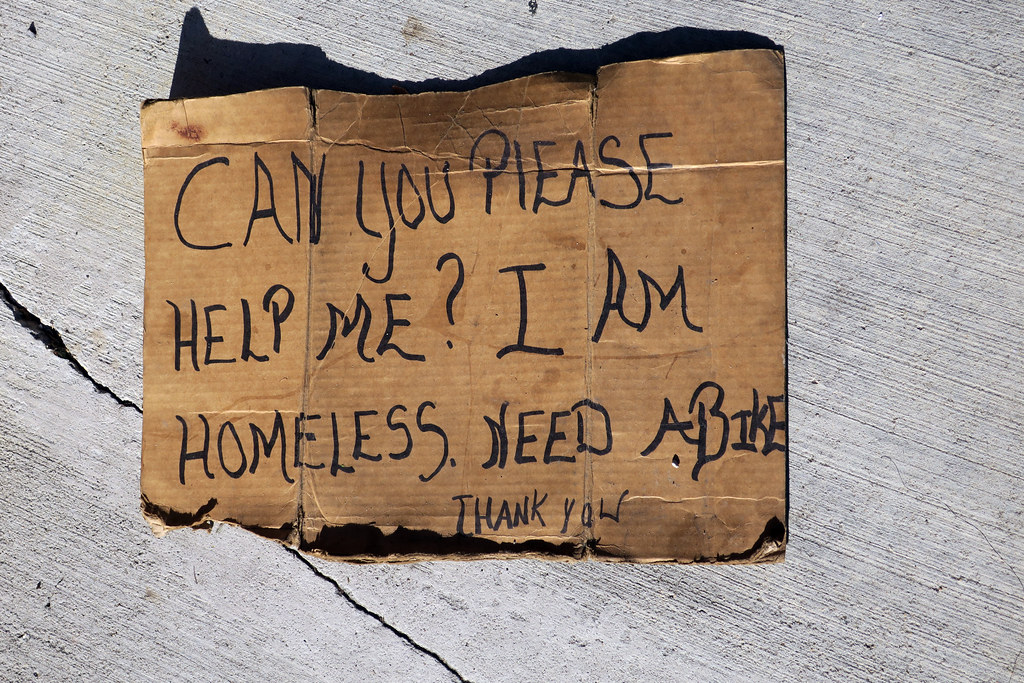 CAN YOU PLEASE
HELP ME? I AM
HOMELESS. NEED A BIKE
THANK YOU